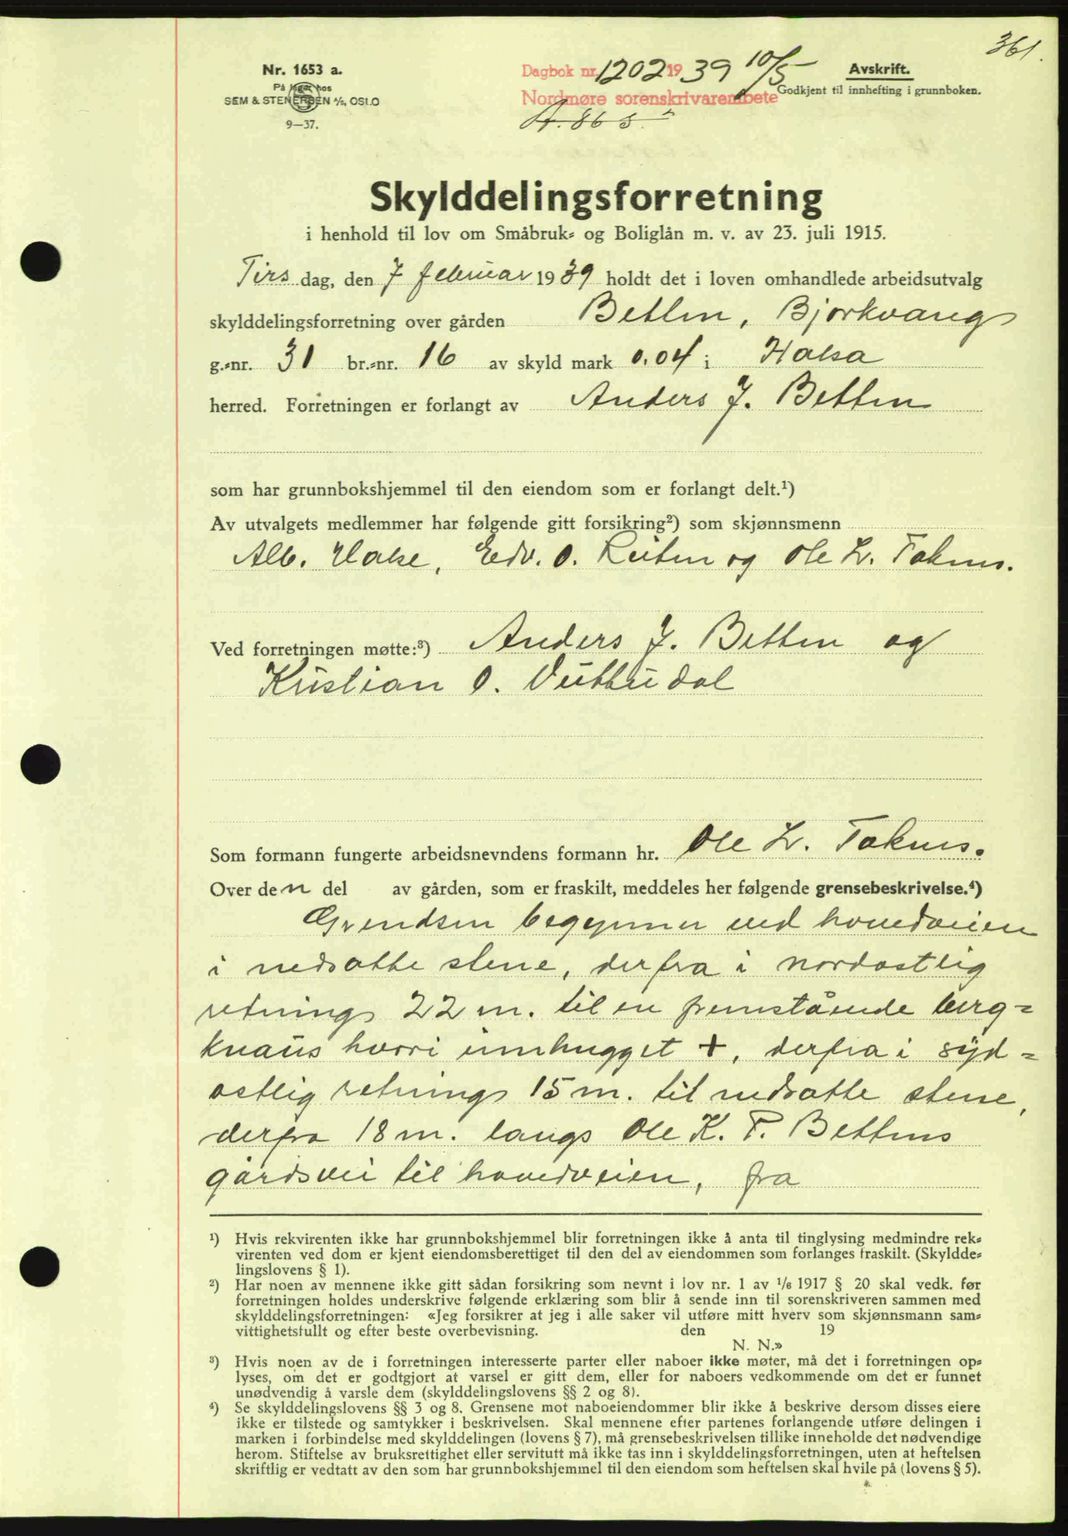 361.
Nr. 1653 a.
På lager hos
SEM & STENERSEN A/S, OSLO
9—37.
Dagbok nr. 1202 1939 10/5
Nordmøre sorenskrivarembete
Avskrift.
Godkjent til innhefting i grunnboken.
Skylddelingsforretning
i henhold til lov om Småbruk- og Boliglån m. v. av 23. juli 1915.
Tirsdag, den 7 februar 1939 holdt det i loven omhandlede arbeidsutvalg
skylddelingsforretning over gården Betten, Bjørkvang
g.-nr. 31 br.-nr. 16 av skyld mark 0.04 i Halsa
herred. Forretningen er forlangt av Anders J. Betten
som har grunnbokshjemmel til den eiendom som er forlangt delt.¹)
Av utvalgets medlemmer har følgende gitt forsikring²) som skjønnsmenn
Alb. Halse, Edv. O. Reiten og Ole L. Taknes.
Ved forretningen møtte:³) Anders J. Betten og
Kristian O.
Som formann fungerte arbeidsnevndens formann hr. Ole L. Taknes.
Over den del av gården, som er fraskilt, meddeles her følgende grensebeskrivelse.⁴)
Grendsen begynner ved hovedveien
i nedsatte stene, derfra i nordostlig
retning 22 m. til en fremstående berg-
knaus hvori innhugget +, derfra i syd-
ostlig retning 15 m. til nedsatte stene,
derfra 18 m. langs Ole K. P. Bettens
gårdsvei til hovedveien, fra
¹) Hvis rekvirenten ikke har grunnbokshjemmel blir forretningen ikke å anta til tinglysing medmindre rek-
virenten ved dom er kjent eiendomsberettiget til den del av eiendommen som forlanges fraskilt. (Skyldde-
lingslovens § 1).
²) Har noen av mennene ikke gitt sådan forsikring som nevnt i lov nr. 1 av 1/6 1917 § 20 skal vedk. før
forretningen holdes underskrive følgende erklæring som blir å sende inn til sorenskriveren sammen med
skylddelingsforretningen: «Jeg forsikrer at jeg i alle saker vil utføre mitt hverv som skjønnsmann sam-
vittighetsfullt og efter beste overbevisning. den 19
N. N.»
³) Hvis noen av de i forretningen interesserte parter eller naboer ikke møter, må det i forretningen op-
lyses, om det er godtgjort at varsel er gitt dem, eller for naboers vedkommende om det er funnet
unødvendig å varsle dem (skylddelingslovens §§ 2 og 8).
⁴) Se skylddelingslovens §§ 3 og 8. Grensene mot naboeiendommer blir ikke å beskrive dersom disses eiere
ikke er tilstede og samtykker i beskrivelsen. Skal mennene efter partenes forlangende utføre delingen i
marken i forbindelse med skylddelingen (lovens § 7), må grensebeskrivelsen tillike inneholde det nødvendige
herom. Stiftelse av bruksrettighet eller servitutt må ikke tas inn i skylddelingsforretningen, uten at heftelsen
skriftlig er vedtatt av den som har grunnbokshjemmel til den eiendom som heftelsen skal hvile på (lovens § 5).